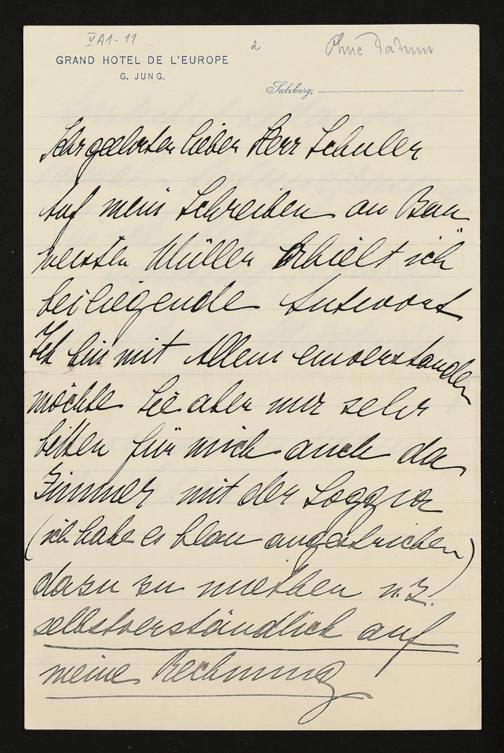 VA1-11
2
Ohne Datum
GRAND HOTEL DE L'EUROPE
G. JUNG.
Salzburg,
Sehr geehrter lieber Herr Schuler
Auf mein Schreiben an Bau
meister Müller erhielt ich
beiliegende Antwort
Ich bin mit Allem einverstanden
möchte Sie aber nur sehr
bitten für mich auch das
Zimmer mit der Loggia
(ich habe es blau angestrichen)
dazu zu miethen u. z.
selbstverständlich auf
meine Rechnung